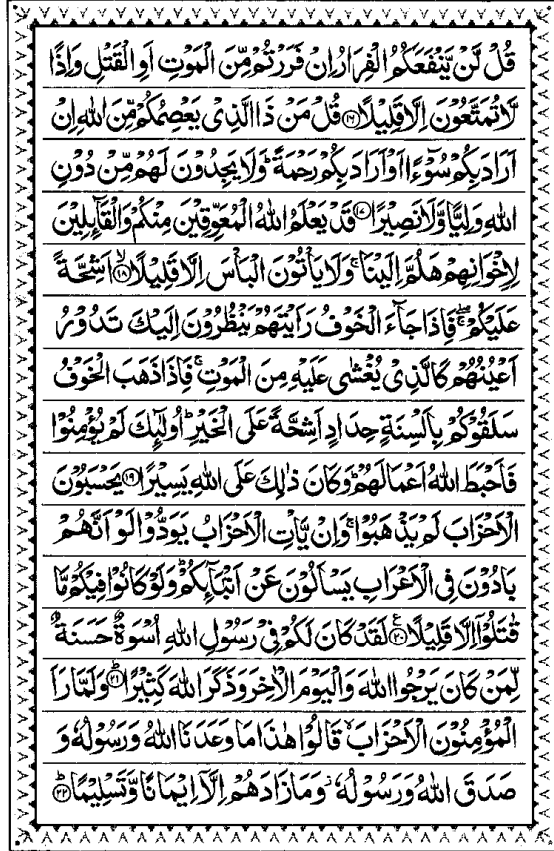 قُلْ لَّنْ يَّنْفَعَكُمُ الْفِرَارُ اِنْ فَرَرْتُمْ مِّنَ الْمَوْتِ اَوِ الْقَتْلِ وَاِذًا
لَّا تُمَتَّعُوْنَ اِلَّا قَلِيْلًا ۝۱۶ قُلْ مَنْ ذَا الَّذِىْ يَعْصِمُكُمْ مِّنَ اللّٰهِ اِنْ
اَرَادَ بِكُمْ سُوْٓءًا اَوْ اَرَادَ بِكُمْ رَحْمَةً ؕ وَلَا يَجِدُوْنَ لَهُمْ مِّنْ دُوْنِ
اللّٰهِ وَلِيًّا وَّلَا نَصِيْرًا ۝۱۷ قَدْ يَعْلَمُ اللّٰهُ الْمُعَوِّقِيْنَ مِنْكُمْ وَالْقَآئِلِيْنَ
لِاِخْوَانِهِمْ هَلُمَّ اِلَيْنَا ۚ وَلَا يَاْتُوْنَ الْبَاْسَ اِلَّا قَلِيْلًا ۝۱۸ۙ اَشِحَّةً
عَلَيْكُمْ ۖۚ فَاِذَا جَآءَ الْخَوْفُ رَاَيْتَهُمْ يَنْظُرُوْنَ اِلَيْكَ تَدُوْرُ
اَعْيُنُهُمْ كَالَّذِىْ يُغْشٰى عَلَيْهِ مِنَ الْمَوْتِ ۚ فَاِذَا ذَهَبَ الْخَوْفُ
سَلَقُوْكُمْ بِاَلْسِنَةٍ حِدَادٍ اَشِحَّةً عَلَى الْخَيْرِ ؕ اُولٰٓئِكَ لَمْ يُؤْمِنُوْا
فَاَحْبَطَ اللّٰهُ اَعْمَالَهُمْ ؕ وَكَانَ ذٰلِكَ عَلَى اللّٰهِ يَسِيْرًا ۝۱۹ يَحْسَبُوْنَ
الْاَحْزَابَ لَمْ يَذْهَبُوْا ۚ وَاِنْ يَّاْتِ الْاَحْزَابُ يَوَدُّوْا لَوْ اَنَّهُمْ
بَادُوْنَ فِى الْاَعْرَابِ يَسْاَلُوْنَ عَنْ اَنْۢبَآئِكُمْ ؕ وَلَوْ كَانُوْا فِيْكُمْ مَّا
قٰتَلُوْٓا اِلَّا قَلِيْلًا ۝۲۰ۧ لَقَدْ كَانَ لَكُمْ فِىْ رَسُوْلِ اللّٰهِ اُسْوَةٌ حَسَنَةٌ
لِّمَنْ كَانَ يَرْجُوا اللّٰهَ وَالْيَوْمَ الْاٰخِرَ وَذَكَرَ اللّٰهَ كَثِيْرًا ۝۲۱ؕ وَلَمَّا رَاَ
الْمُؤْمِنُوْنَ الْاَحْزَابَ ۙ قَالُوْا هٰذَا مَا وَعَدَنَا اللّٰهُ وَرَسُوْلُهٗ وَ
صَدَقَ اللّٰهُ وَرَسُوْلُهٗ ۚ وَمَا زَادَهُمْ اِلَّاۤ اِيْمَانًا وَّتَسْلِيْمًا ۝۲۲ؕ